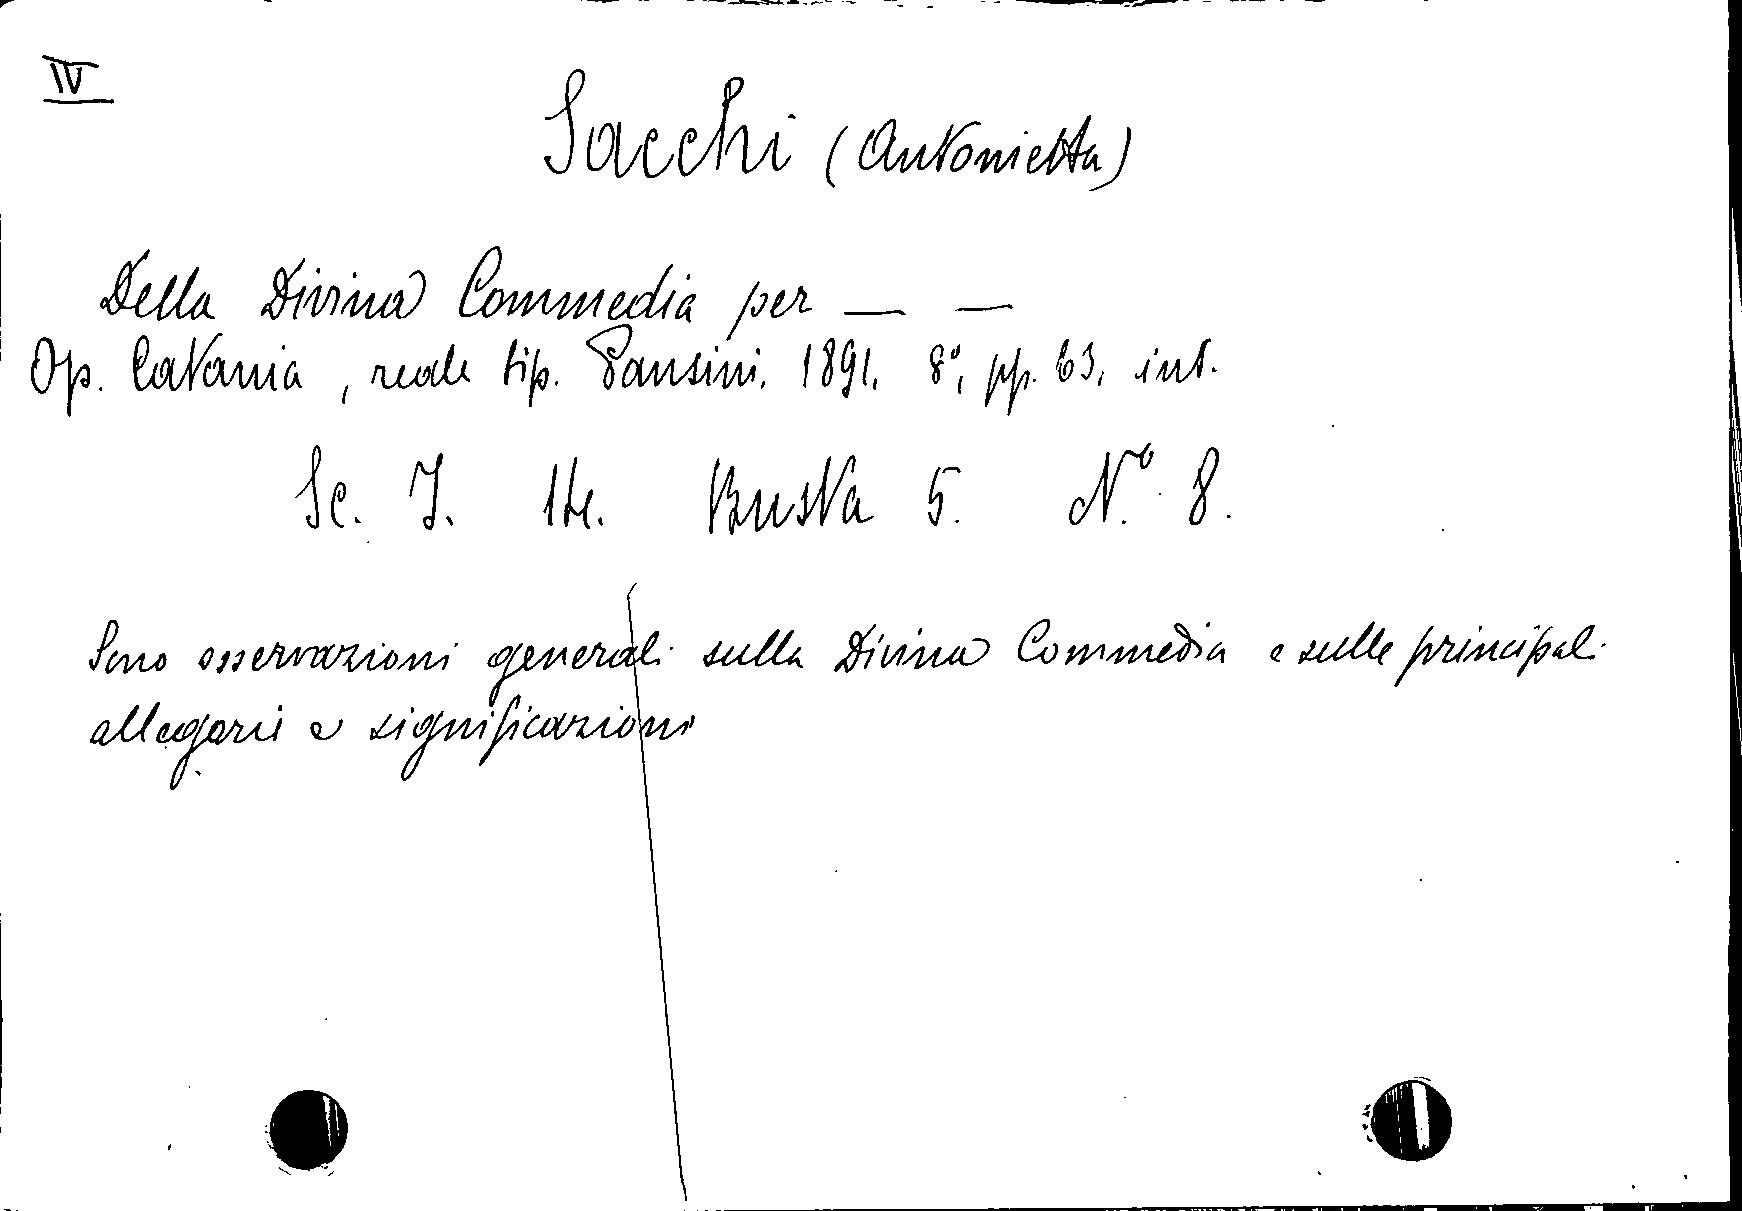 IV
Sacchi (Antonietta)
Della Divina Commedia per — —
Op. Catania, reale tip. Pansini. 1891. 8°, pp. 63, int.
Sc. I. 14. Busta 5. N.° 8.
Sono osservazioni generali sulla Divina Commedia e sulle principali
allegorie e significazioni